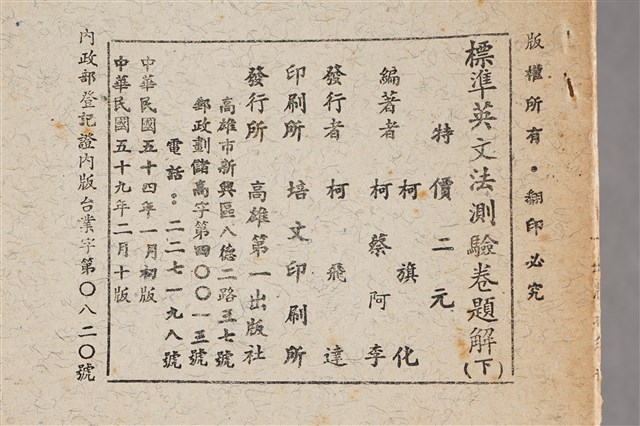 版權所有・翻印必究
標準英文法測驗卷題解(下)
特價二元
編著者 柯旗化
柯蔡阿李
發行者 柯飛達
印刷所 培文印刷所
發行所 高雄第一出版社
高雄市新興區八德二路三七號
郵政劃儲高字第四〇〇一三號
電話：二二七一九八號
中華民國五十四年一月初版
中華民國五十九年二月十版
內政部登記證內版台業字第〇八二〇號